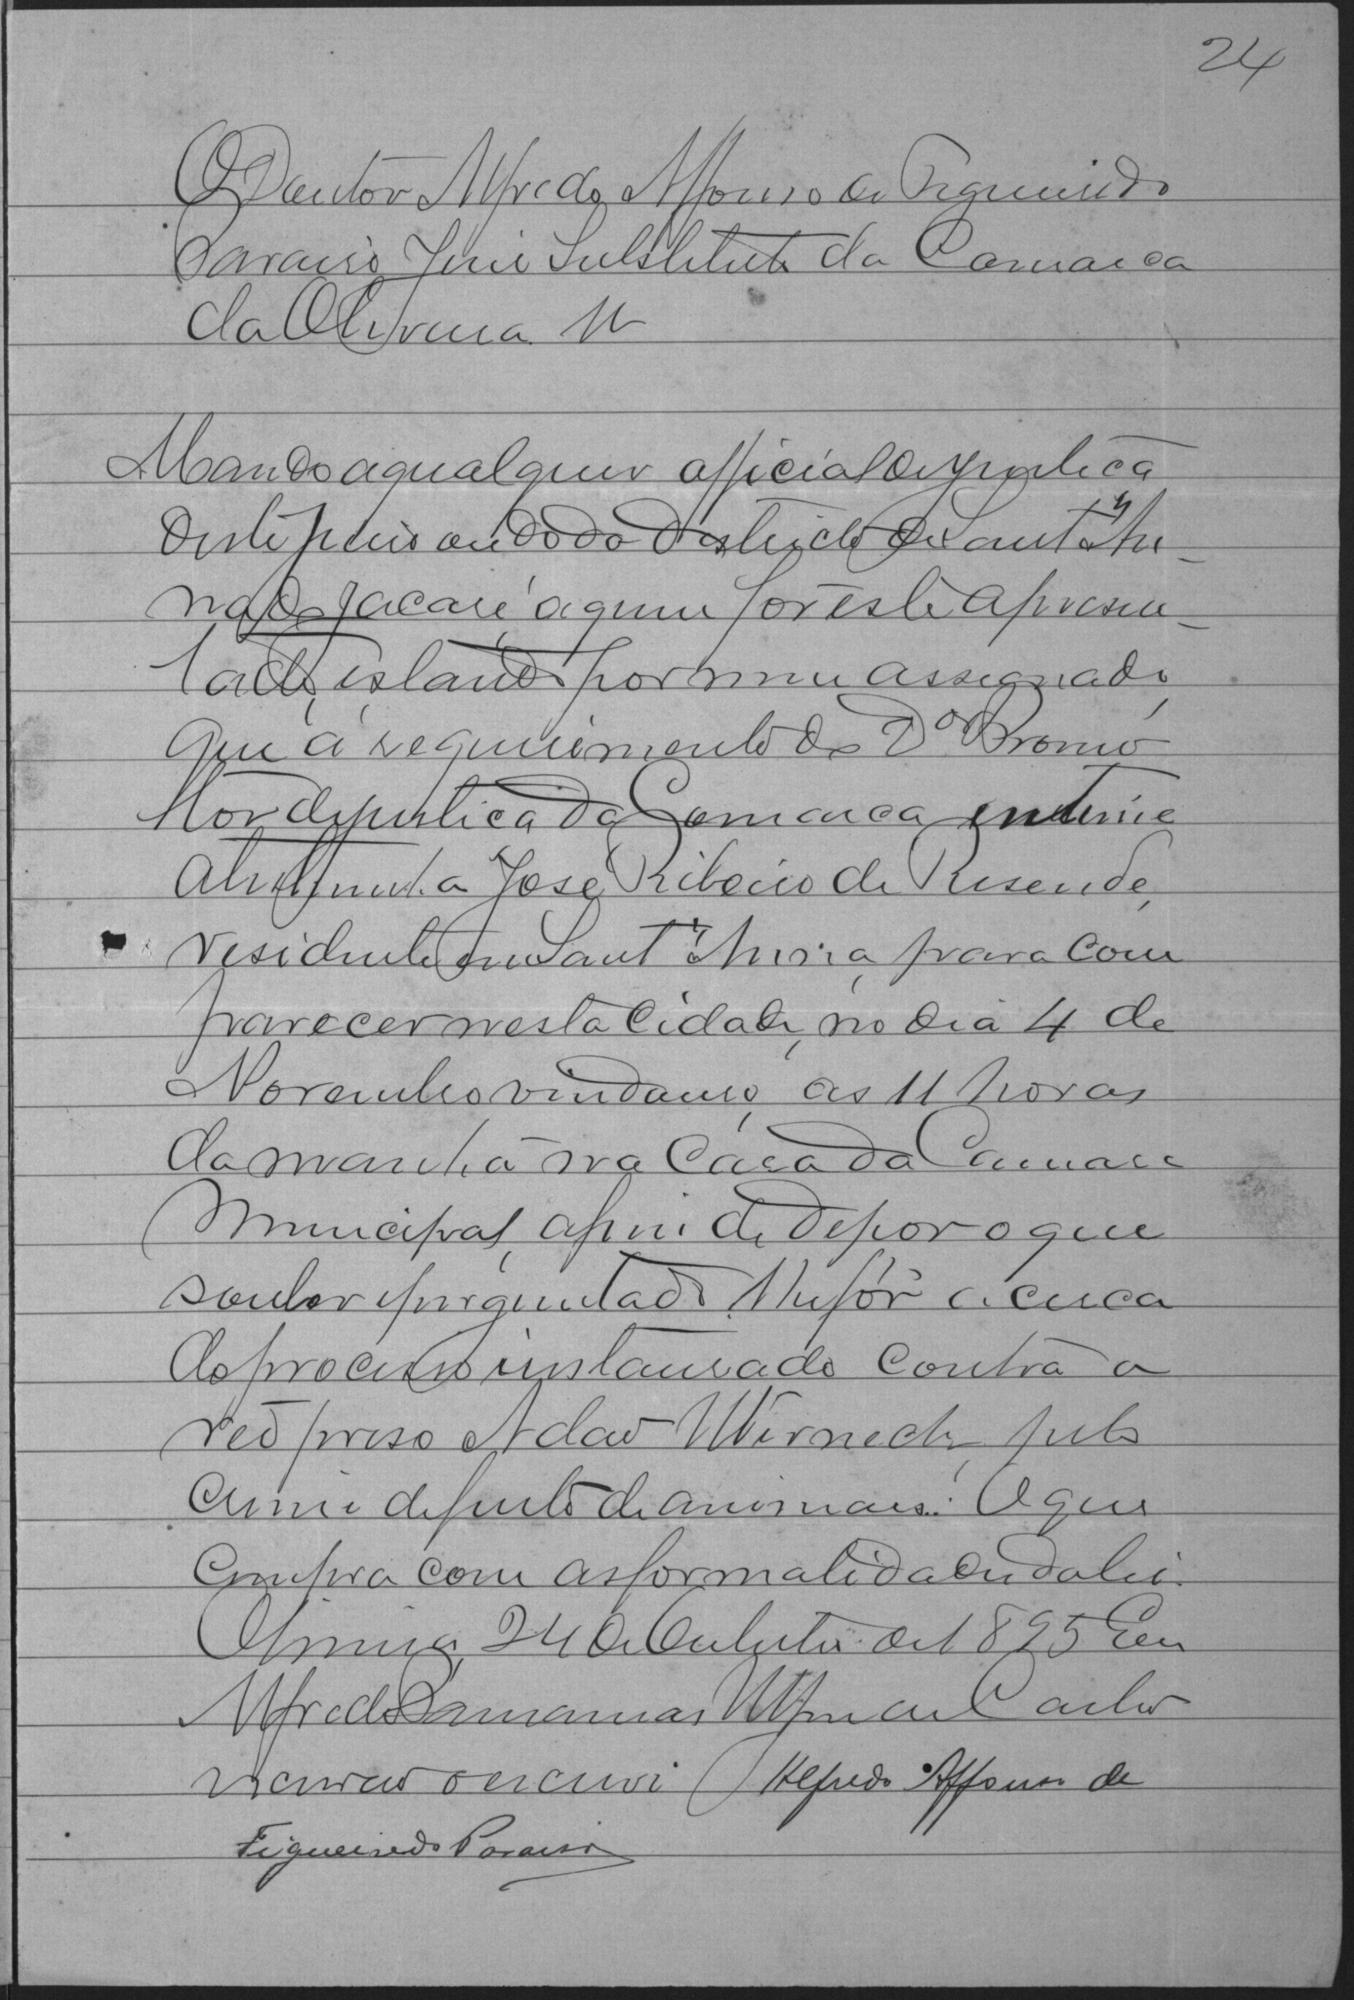 24
O Doutor Alfredo Affonso de Figueiredo
Paraiso Juiz Substituto da Comarca
da Oliveira
Mando a qual quer official de justiça
deste juizo ou do do districto de Sant'An-
na do Jacaré a quem for este apresen-
tado, estando por mim assignado,
que á requerimento do Dor Promo
tor de justiça da Comarca intime
a testimunha José Ribeiro de Resende,
residente em Sant'Anna, para com
parecer nesta Cidade, no dia 4 de
Novembro vindouro, as 11 horas
da manhã na Casa da Camara
Municipal, afim de depor o que
souber e perguntado lhe fôr acerca
do processo instaurado contra o
réo preso Adão Wernech, pelo
crime de furto de animaes. O que
cumpra com as formalidades da lei.
Oliveira, 24 de Outubro de 1895 Eu
Alfredo
escrivão o escrevi Alfredo Affonso de
Figueiredo Paraiso